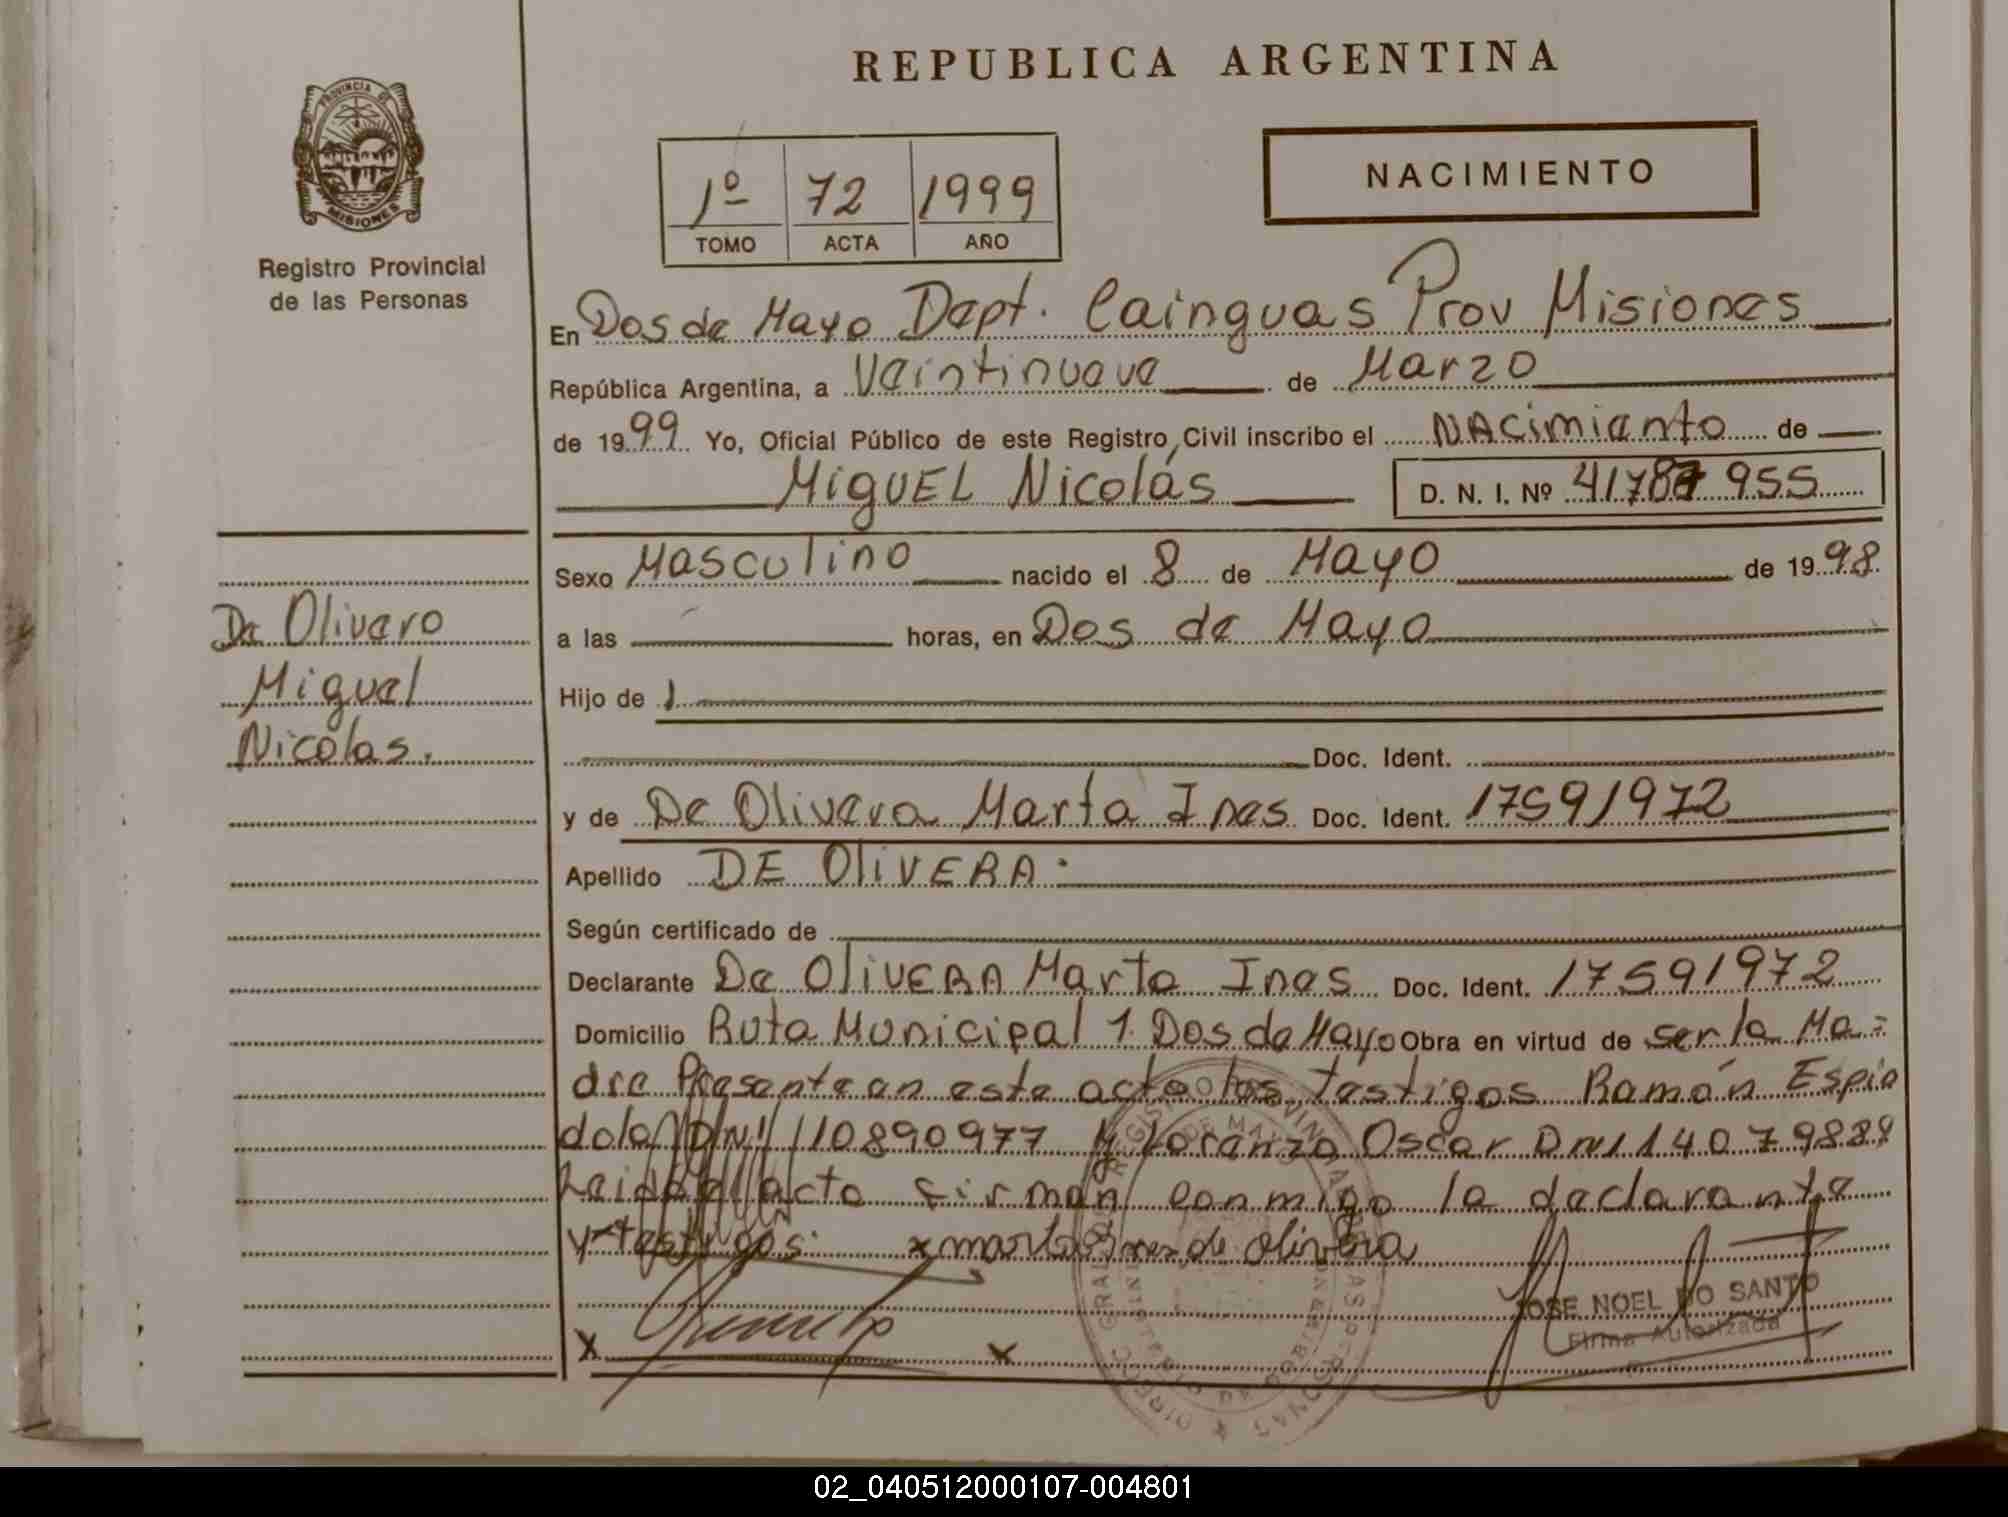 REPUBLICA ARGENTINA
PROVINCIA DE
MISIONES
Registro Provincial
de las Personas
1º 72 1999
TOMO ACTA AÑO
NACIMIENTO
En Dos de Mayo Dept. Cainguas Prov Misiones
República Argentina, a Veintinueve de Marzo
de 1999 Yo, Oficial Público de este Registro Civil inscribo el NACimiento de
MiguEL Nicolás D. N. I. Nº 41787 955
Sexo Masculino nacido el 8 de Mayo de 1998
De Olivero
Miguel
Nicolas.
a las horas, en Dos de Mayo
Hijo de
Doc. Ident.
y de De Olivera Marta Ines Doc. Ident. 17591972
Apellido DE OliVERA.
Según certificado de
Declarante De OliVERA Marta Ines Doc. Ident. 17591972
Domicilio Ruta Municipal 1. Dos de Mayo Obra en virtud de ser la Ma=
dre Presente en este acto los testigos Ramón Espin
dola DNI 10890977 y Lorenzo Oscar DNI 14079889
Leido el acto firman conmigo la declarante
y testigos. x marta ines de olivera
JOSE NOEL DO SANTO
Firma Autorizada
X x
02_040512000107-004801